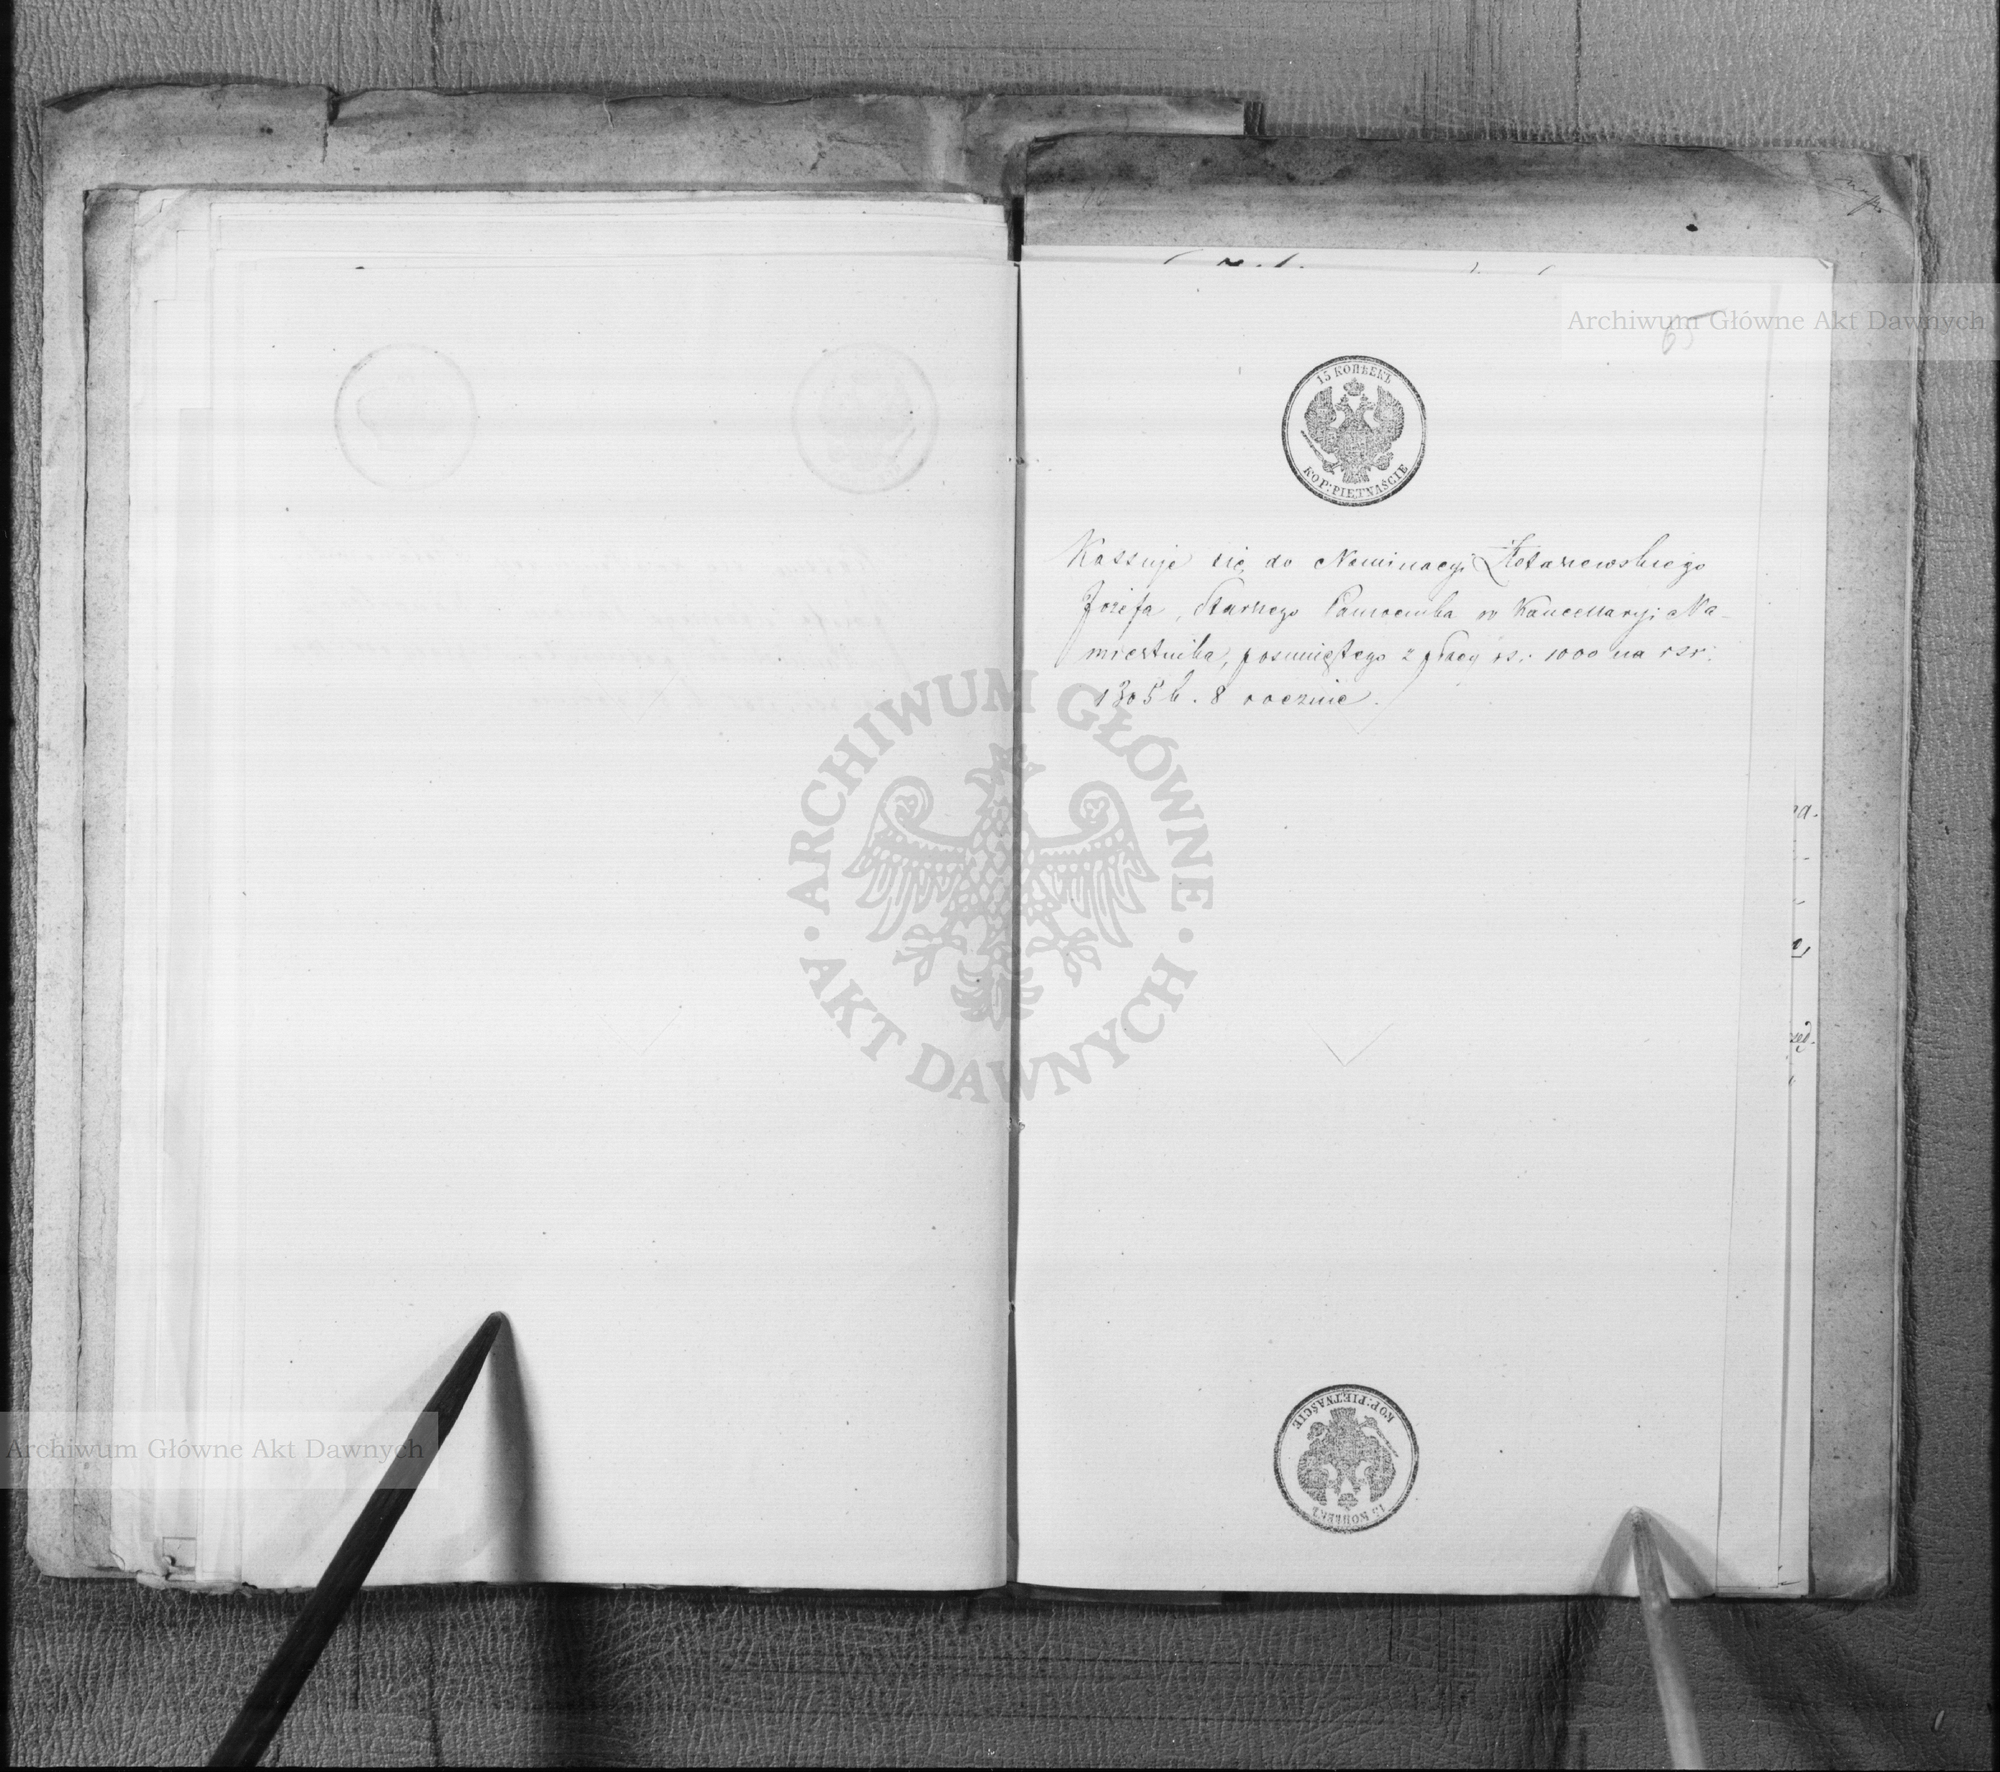 Archiwum Główne Akt Dawnych
65
15 КОПѢЕКЪ
KOP: PIĘTNAŚCIE
Kassuje się do Nominacyi
Józefa, Starszego Pomocnika w Kancellaryi Na-
miestnika, posuniętego z płacy rs: 1000 na rsr:
1305 k. 8 rocznie.
ARCHIWUM GŁÓWNE
AKT DAWNYCH
na.
KOP: PIĘTNAŚCIE
15 КОПѢЕКЪ
Archiwum Główne Akt Dawnych